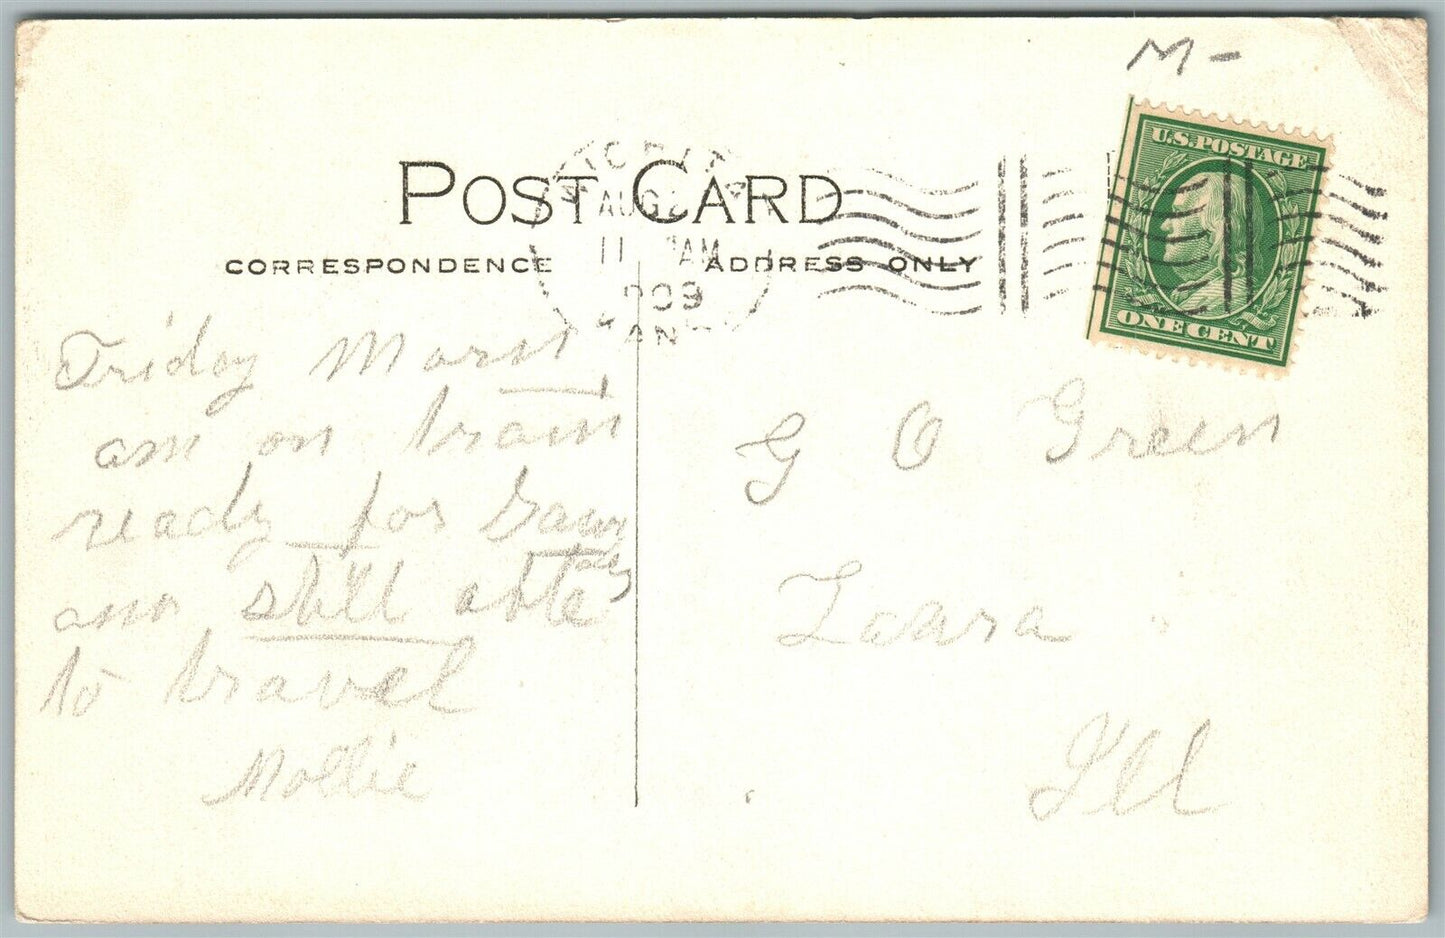 M-
POST CARD
CORRESPONDENCE
ADDRESS ONLY
WICHITA
AUG 2
11 AM
1909
KAN
U.S. POSTAGE
ONE CENT
Friday Morn
am on train
ready for
and still able
to travel
Mollie
G O Green
Laura
Ill